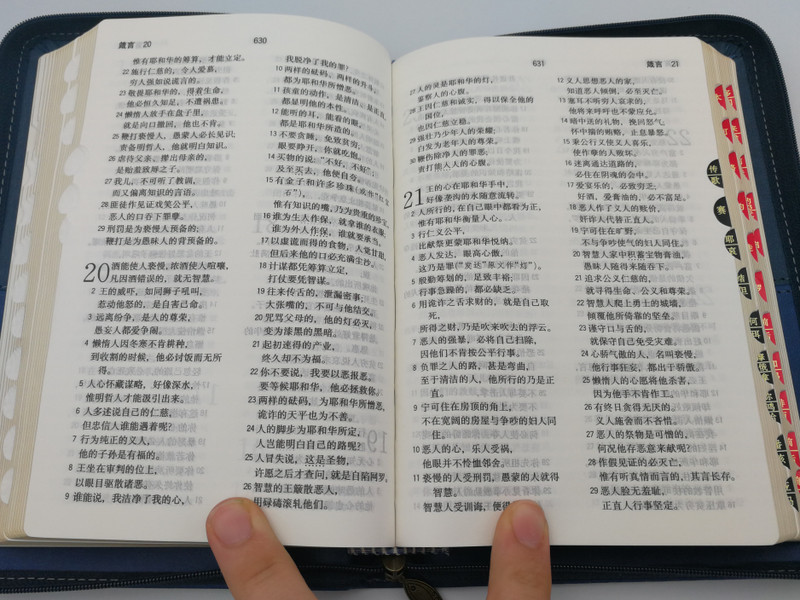 箴言 20
630
惟有耶和华的筹算，才能立定。
22 施行仁慈的，令人爱慕，
穷人强如说谎言的。
23 敬畏耶和华的，得着生命，
他必恒久知足，不遭祸患。
24 懒惰人放手在盘子里，
就是向口撤回，他也不肯。
25 鞭打亵慢人，愚蒙人必长见识；
责备明哲人，他就明白知识。
26 虐待父亲、撵出母亲的，
是贻羞致辱之子。
27 我儿，不可听了教训，
而又偏离知识的言语。
28 匪徒作见证戏笑公平，
恶人的口吞下罪孽。
29 刑罚是为亵慢人预备的，
鞭打是为愚昧人的背预备的。
20 酒能使人亵慢，浓酒使人喧嚷，
凡因酒错误的，就无智慧。
2 王的威吓，如同狮子吼叫，
惹动他怒的，是自害己命。
3 远离纷争，是人的尊荣，
愚妄人都爱争闹。
4 懒惰人因冬寒不肯耕种，
到收割的时候，他必讨饭而无所
得。
5 人心怀藏谋略，好像深水，
惟明哲人才能汲引出来。
6 人多述说自己的仁慈，
但忠信人谁能遇着呢？
7 行为纯正的义人，
他的子孙是有福的。
8 王坐在审判的位上，
以眼目驱散诸恶。
9 谁能说，我洁净了我的心，
我脱净了我的罪？
10 两样的砝码，两样的升斗，
都为耶和华所憎恶。
11 孩童的动作，是清洁，是正直，
都显明他的本性。
12 能听的耳，能看的眼，
都是耶和华所造的。
13 不要贪睡，免致贫穷，
眼要睁开，你就吃饱。
14 买物的说：“不好，不好”；
及至买去，他便自夸。
15 有金子和许多珍珠（或作“红宝
石”），
惟有知识的嘴，乃为贵重的珍宝。
16 谁为生人作保，就拿谁的衣服，
谁为外人作保，谁就要承当。
17 以虚谎而得的食物，人觉甘甜，
但后来他的口必充满尘沙。
18 计谋都凭筹算立定，
打仗要凭智谋。
19 往来传舌的，泄漏密事；
大张嘴的，不可与他结交。
20 咒骂父母的，他的灯必灭，
变为漆黑的黑暗。
21 起初速得的产业，
终久却不为福。
22 你不要说，我要以恶报恶，
要等候耶和华，他必拯救你。
23 两样的砝码，为耶和华所憎恶，
诡诈的天平也为不善。
24 人的脚步为耶和华所定，
人岂能明白自己的路呢？
25 人冒失说，这是圣物，
许愿之后才查问，就是自陷网罗。
26 智慧的王簸散恶人，
用碌碡滚轧他们。
631
箴言 21
27 人的灵是耶和华的灯，
鉴察人的心腹。
28 王因仁慈和诚实，得以保全他的
国位，
也因仁慈立稳。
29 强壮乃少年人的荣耀；
白发为老年人的尊荣。
30 鞭伤除净人的罪恶；
责打能入人的心腹。
21 王的心在耶和华手中，
好像垄沟的水随意流转。
2 人所行的，在自己眼中都看为正，
惟有耶和华衡量人心。
3 行仁义公平，
比献祭更蒙耶和华悦纳。
4 恶人发达，眼高心傲，
这乃是罪（“发达”原文作“灯”）。
5 殷勤筹划的，足致丰裕；
行事急躁的，都必缺乏。
6 用诡诈之舌求财的，就是自己取
死，
所得之财，乃是吹来吹去的浮云。
7 恶人的强暴，必将自己扫除，
因他们不肯按公平行事。
8 负罪之人的路，甚是弯曲，
至于清洁的人，他所行的乃是正
直。
9 宁可住在房顶的角上，
不在宽阔的房屋与争吵的妇人同
住。
10 恶人的心，乐人受祸，
他眼并不怜恤邻舍。
11 亵慢的人受刑罚，愚蒙的人就得
智慧。
智慧人受训诲，便得
12 义人思想恶人的家，
知道恶人倾倒，必至灭亡。
13 塞耳不听穷人哀求的，
他将来呼吁也不蒙应允。
14 暗中送的礼物，挽回怒气；
怀中搋的贿赂，止息暴怒。
15 秉公行义使义人喜乐，
使作孽的人败坏。
16 迷离通达道路的，
必住在阴魂的会中。
17 爱宴乐的，必致穷乏；
好酒，爱膏油的，必不富足。
18 恶人作了义人的赎价，
奸诈人代替正直人。
19 宁可住在旷野，
不与争吵使气的妇人同住。
20 智慧人家中积蓄宝物膏油，
愚昧人随得来随吞下。
21 追求公义仁慈的，
就寻得生命、公义和尊荣。
22 智慧人爬上勇士的城墙，
倾覆他所倚靠的坚垒。
23 谨守口与舌的，
就保守自己免受灾难。
24 心骄气傲的人，名叫亵慢，
他行事狂妄，都出于骄傲。
25 懒惰人的心愿将他杀害，
因为他手不肯作工。
26 有终日贪得无厌的，
义人施舍而不吝惜。
27 恶人的祭物是可憎的，
何况他存恶意来献呢？
28 作假见证的必灭亡，
惟有听真情而言的，其言长存。
29 恶人脸无羞耻，
正直人行事坚定。
传
歌
赛
耶
哀